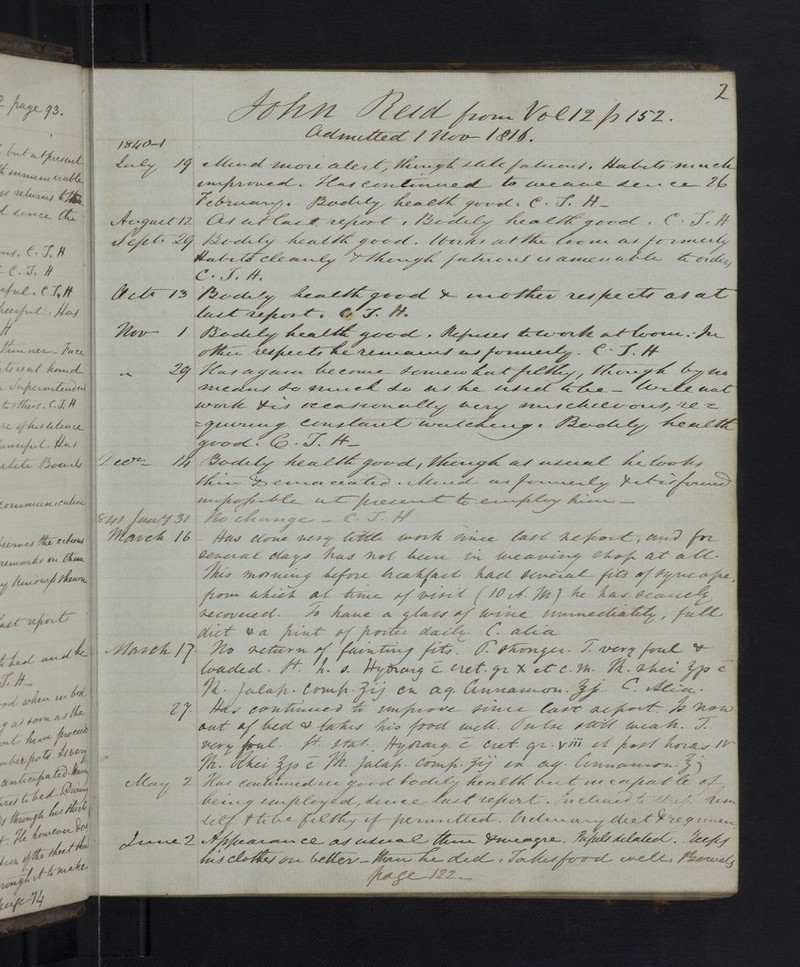 2 page 93.
but at present
innumerable
returns to the
since the
C. J. H
C. J. H
C. J. H
Has
H
Face
hand
Superintendent
C. J. H
of his silence
Has
Bowels
remarks on
last report
bed and he
J. H
when in bed
as soon as the
him
pots. Is very
anticipated.
to bed.
through his
He however
of the sheet
to make
page 74
2
John Reid from Vol 12 p 152.
Admitted 1 Nov 1816.
1840
July 19 Mind more alert, though still fatuous. Habits much
improved. Has continued to weave since 26
February. Bodily health good. C. J. H –
August 12 As at last report. Bodily health good. C. J. H
Sept. 29 Bodily health good. Works at the loom as formerly
Habits cleanly & though fatuous is amenable to orders
C. J. H.
Octr 13 Bodily health good & in other respects as at
last report. C. J. H.
Nov 1 Bodily health good. Refuses to work at loom. In
other respects he remains as formerly. C. J. H
" 29 Has again become somewhat filthy, though by no
means so much so as he used to be – Will not
work & is occasionally very mischievous, re=
=quiring constant watching. Bodily health
good. C. J. H –
Decr 14 Bodily health good, though as usual he looks
thin & emaciated. Mind as formerly & it is found
impossible at present to employ him –
1841 Jany 31 No change – C. J. H
March 16 Has done very little work since last report, and for
several days has not been in weaving shop at all.
This morning before breakfast had several fits of syncope,
from which at time of visit (10 A. M) he has scarcely
recovered. To have a glass of wine immediately, full
diet & a pint of porter daily. C. alia
March 17. No return of fainting fits. P. stronger. T. very foul &
loaded. Ft. h. s. Hydrarg c̄ cret. gr X et c. m. Mt. rhei ʒp c̄
Mt. Jalap. comp. ʒij en aq. Cinnamon. ℥j. C. alia.
27. Has continued to improve since last report. Is now
out of bed & takes his food well. Pulse still weak. T.
very foul. Ft. stat. Hydrarg c̄ cret gr. viii et post horas IV
Mt. Rhei ʒp c̄ Mt. Jalap. comp. ʒij in aq. Cinnamon ℥j
May 2 Has continued in good bodily health but incapable of
being employed, since last report. Inclined to strip him
self & to be filthy if permitted. Ordinary diet & regimen
June 2 Appearance as usual thin & meagre. Pupils dilated. Keeps
his clothes on better than he did. Takes food well. Bowels
page 122 –